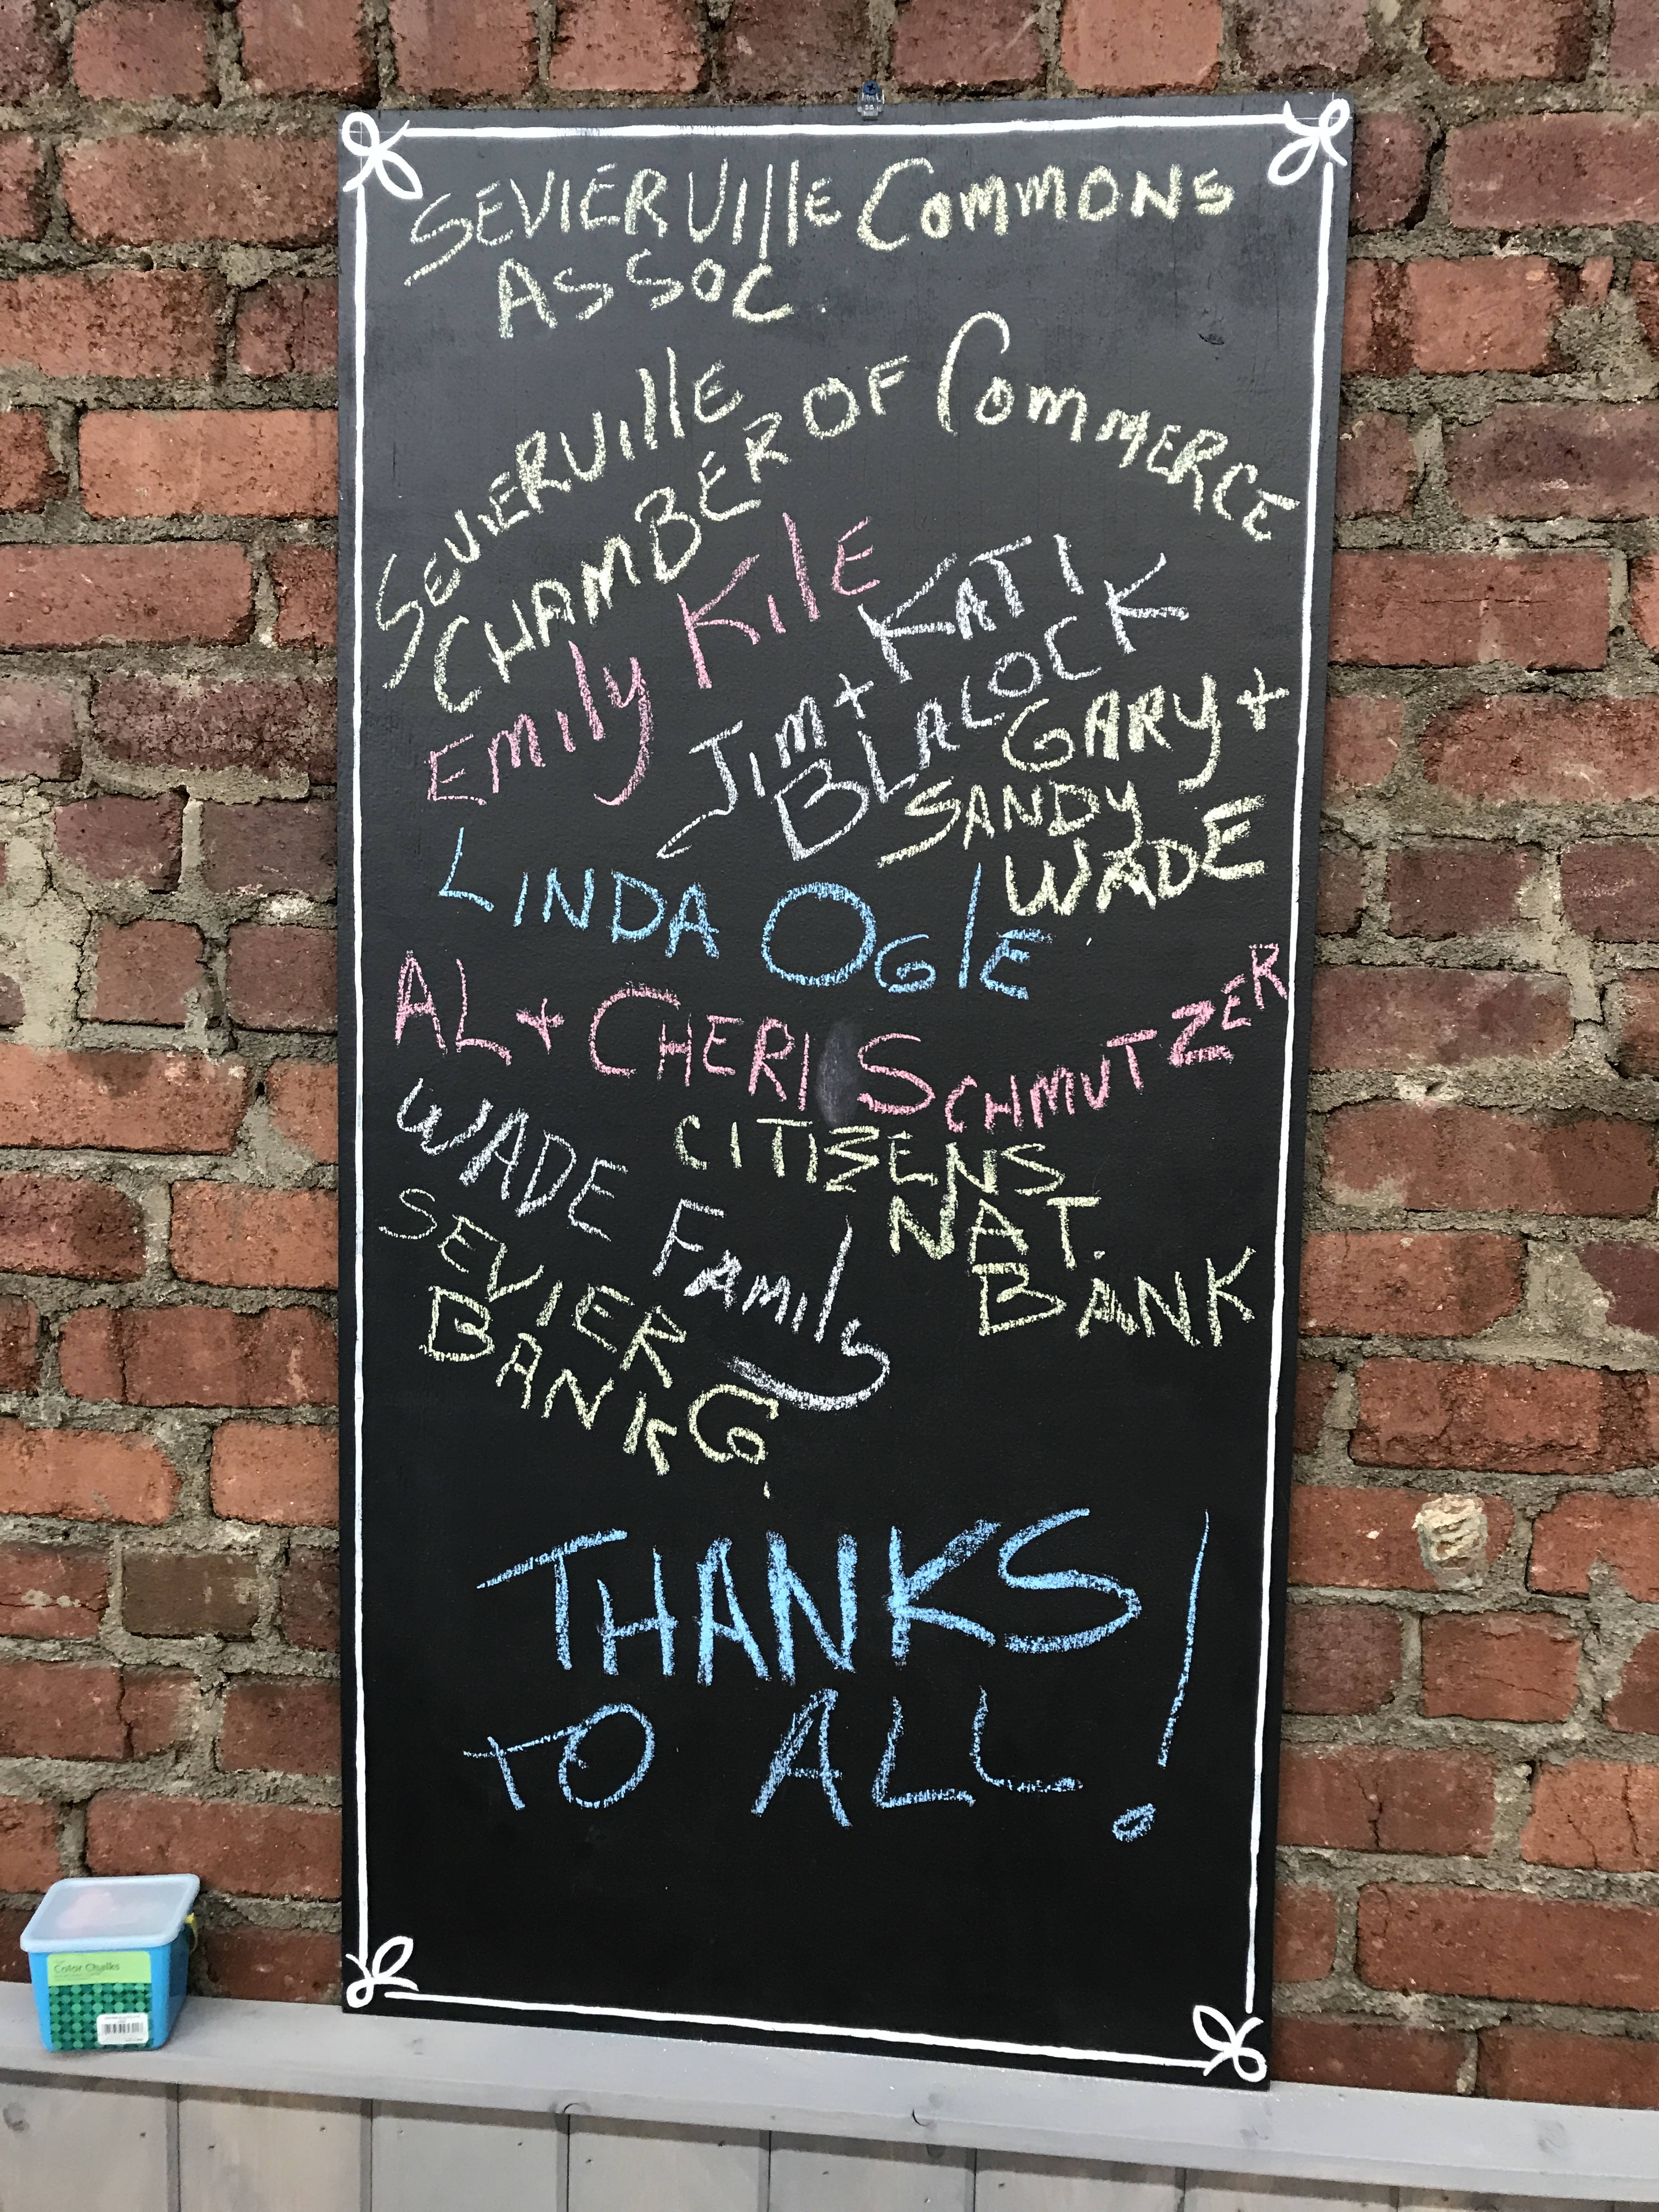 SEVIERVIllE COMMONS
ASSOC.
SEVIERVIllE
CHAMBER OF COMMERCE
EMIly KIlE
JIM + KATI
BLALOCK
GARY +
SANDY
WADE
LINDA OGlE
AL + CHERI SCHMUTZER
WADE FAMIly
CITIZENS
NAT.
BANK
SEVIER
BANKG
THANKS
TO ALL!
Color Chalks